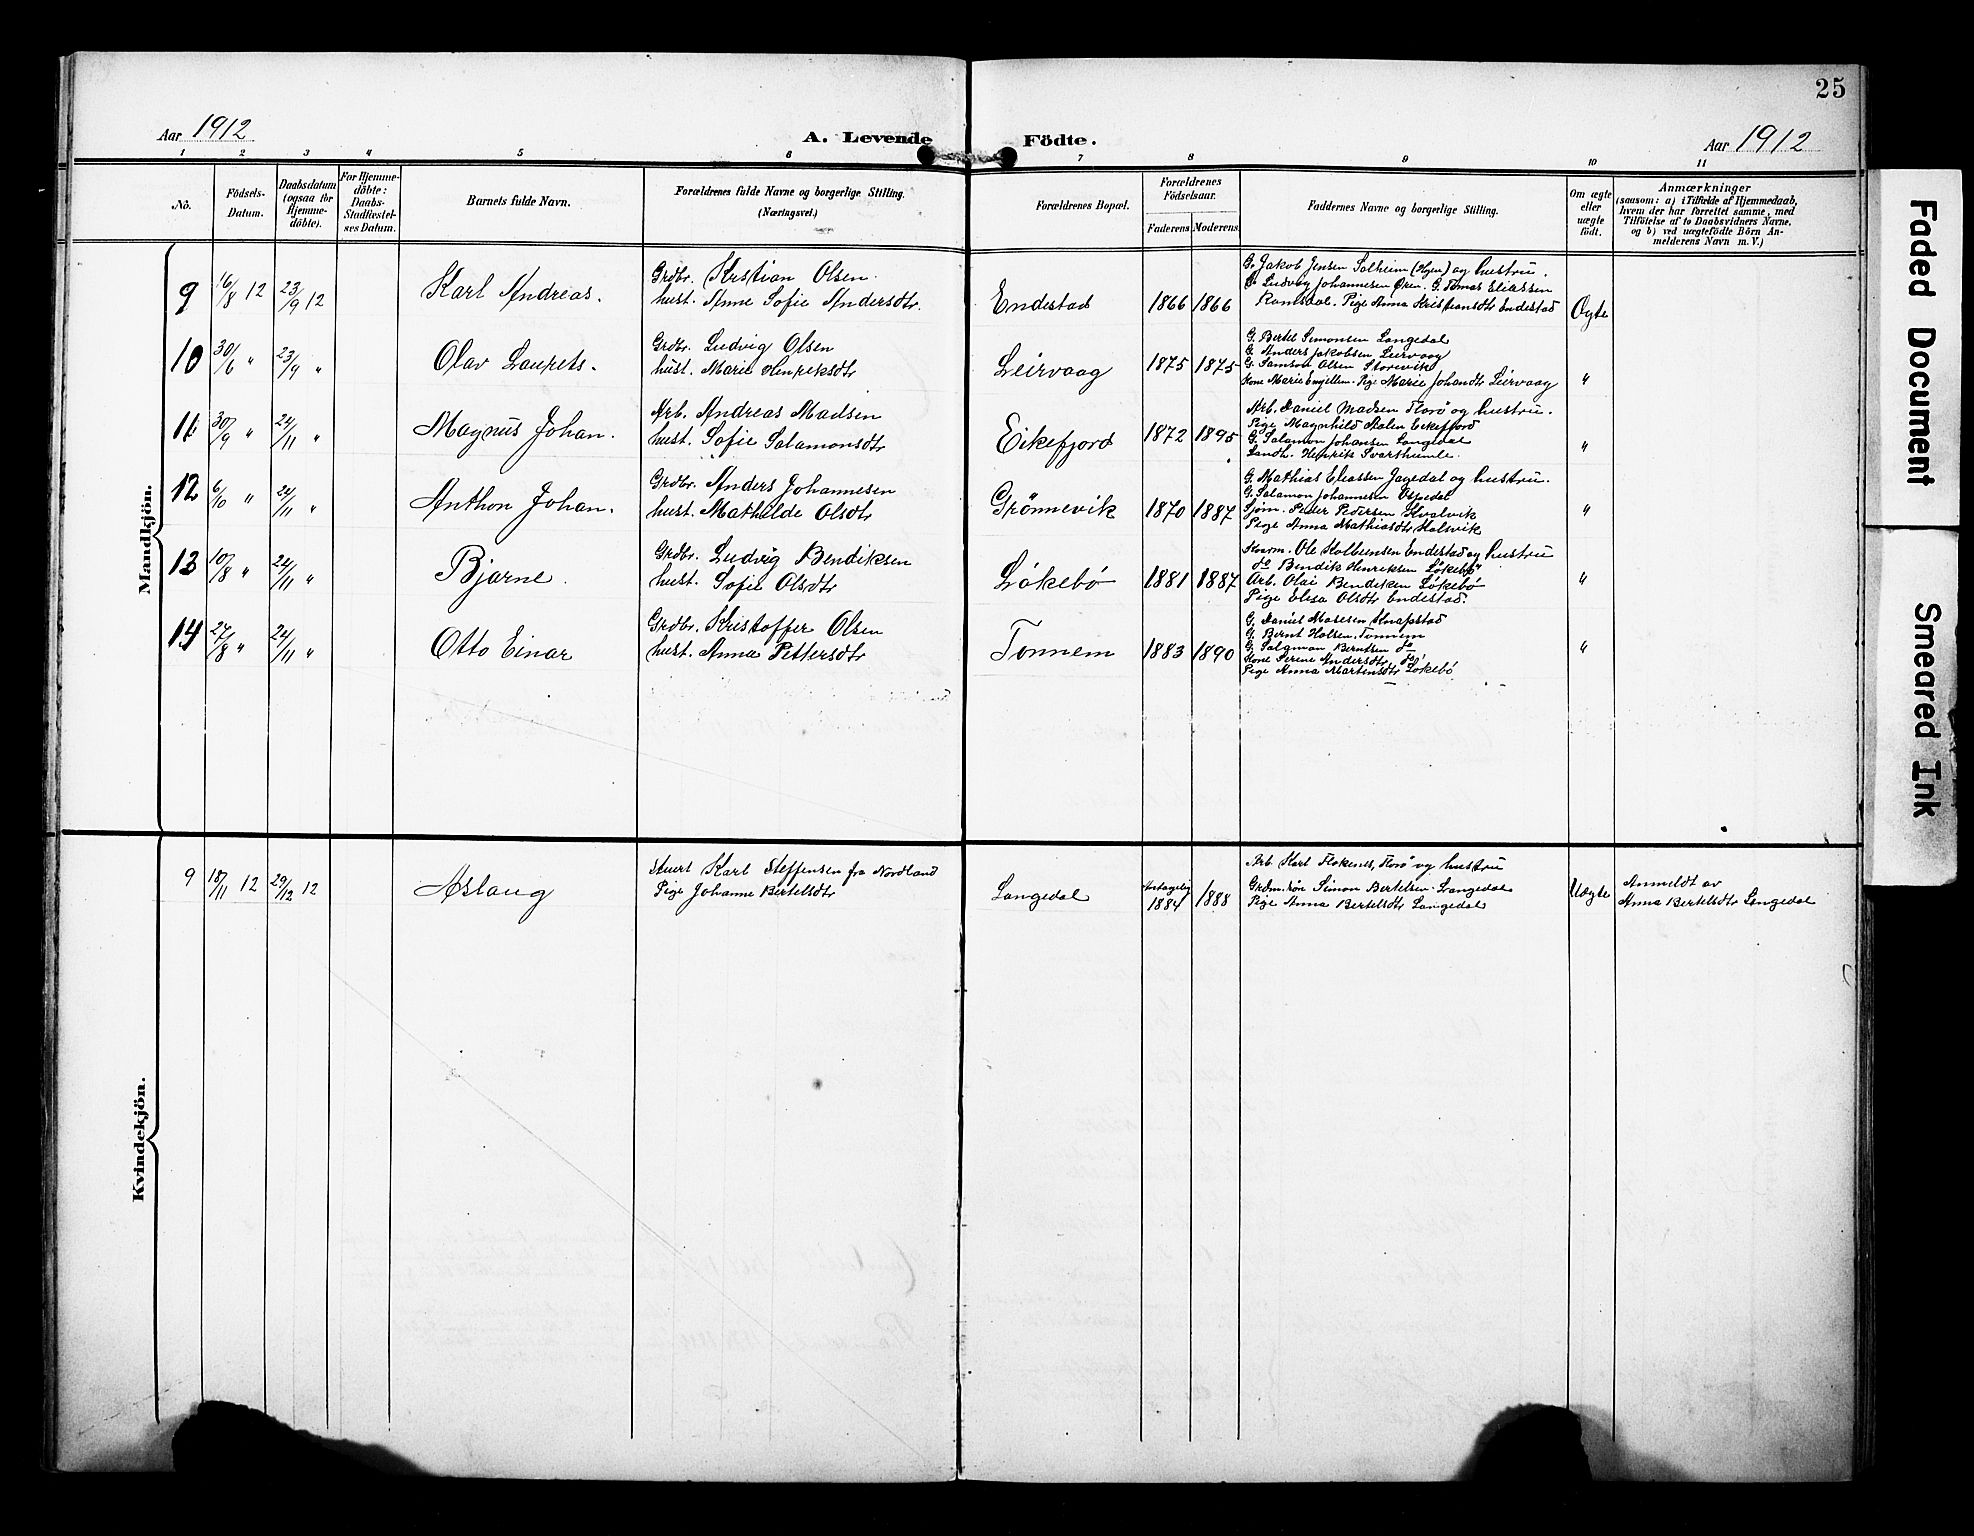 25
Aar 1912
A. Levende Födte.
Aar 1912
1 2 3 4 5 6 7 8 9 10 11
No.
Födsels-
Datum.
Daabsdatum
(ogsaa for
Hjemme-
döbte).
For Hjemme-
döbte:
Daabs-
Stadfæstel-
ses Datum.
Barnets fulde Navn.
Forældrenes fulde Navne og borgerlige Stilling.
(Næringsvei.)
Forældrenes Bopæl.
Forældrenes
Födselsaar.
Faderens Moderens
Faddernes Navne og borgerlige Stilling.
Om ægte
eller
uægte
födt.
Anmærkninger
(saasom: a) i Tilfælde af Hjemmedaab,
hvem der har forrettet samme, med
Tilföielse af to Daabsvidners Navne,
og b) ved uægtefödte Börn An-
melderens Navn m. V.)
Mandkjön.
9 16/8 12 23/9 12
Karl Andreas.
Grdbr. Kristian Olsen.
hust. Anne Sofie Andersdtr.
Endestad
1866 1866
G. Jakob Jensen Solheim (Hyen) og hustru.
G. Ludvig Johannesen Øren. G. Tomas Eliassen
Ramsdal. Pige Anna Kristiansdtr Endestad
Ægte
10 30/6 " 23/9 "
Olav Laurets.
Grdbr. Ludvig Olsen
hust. Marie Henriksdtr
Leirvaag
1875 1875
G. Bertel Simonsen Langedal
G. Anders Jakobsen Leirvaag
G. Samson Olsen Storevik
Kone Marie Engellem. Pige Marie Johandtr Leirvaag
"
11 30/9 " 24/11 "
Magnus Johan.
Arb. Andreas Madsen
hust. Sofie Salamonsdtr
Eikefjord
1872 1895
Arb. Daniel Madsen Florö og hustru.
Pige Magnhild Aalen Eikefjord
G. Salamon Johansen Langedal
Landh. Henrik Svarthumle.
"
12 6/10 " 24/11 "
Anthon Johan.
Grdbr. Anders Johannesen
hust. Mathilde Olsdtr
Grönnevik
1870 1887
G. Mathias Eliassen Jagedal og hustru.
G. Salamon Johannesen Ospedal
Sjöm. Peder Pedersen Kvalvik
Pige Anna Mathiasdtr Halsvik
"
13 10/8 " 24/11 "
Bjarne.
Grdbr. Ludvig Bendiksen
hust. Sofie Olsdtr
Lökebö
1881 1887
Kaarm. Ole Kolbensen Endestad og hustru
do Bendik Henriksen Lökebö
Arb. Olai Bendiksen Lökebö
Pige Elisa Olsdtr Endestad.
"
14 27/8 " 24/11 "
Otto Einar
Grdbr. Kristoffer Olsen
hust. Anna Pettersdtr
Tonnem
1883 1890
G. Daniel Masesen Knapstad
G. Bernt Holsen, Tonnem
G. Salamon Berntsen do
Kone Serine Andersdtr do
Pige Anna Martensdtr Lökebö
"
Kvindekjön.
9 18/11 12 29/12 12
Aslaug
Stuert Karl Steffensen fra Nordland
Pige Johanne Bertelsdtr
Langedal
Antagelig
1884 1888
Arb. Karl Flokenes, Florö og hustru
Grdm.sön Simon Bertelsen Langedal
Pige Anna Bertelsdtr Langedal
Uægte
Anmeldt av
Anna Bertelsdtr Langedal
Faded Document
Smeared Ink